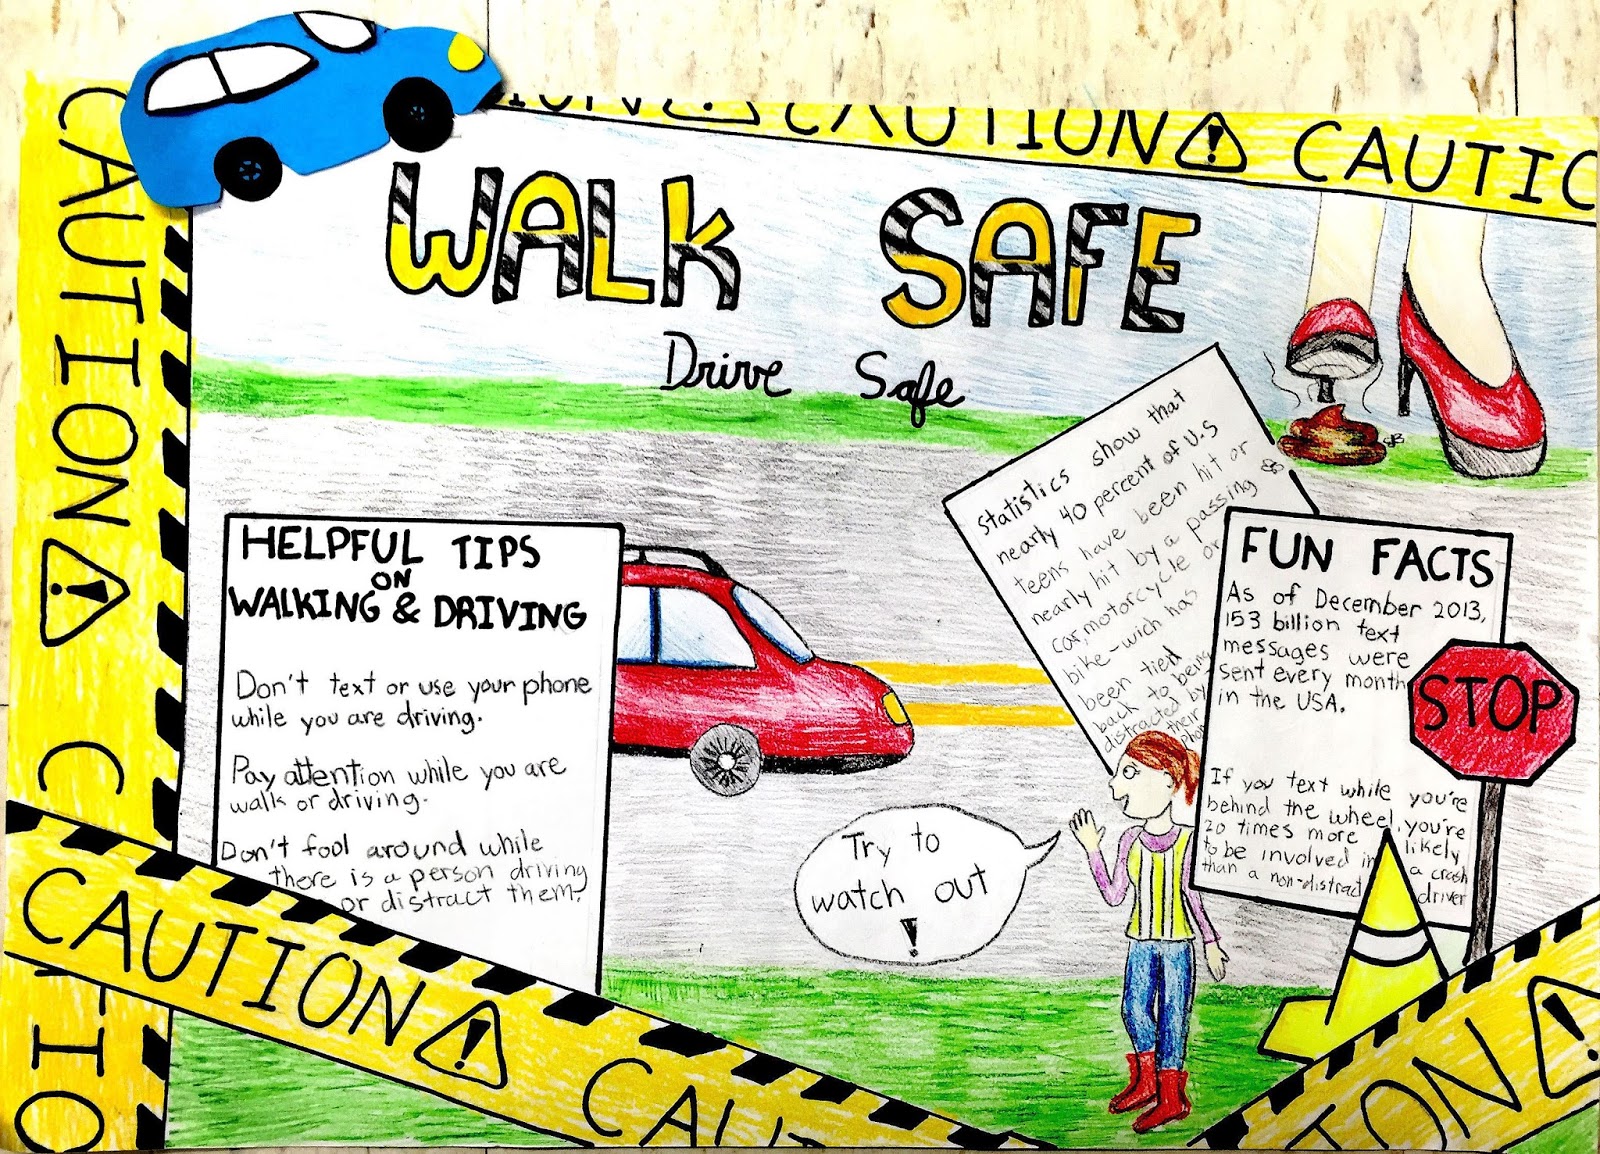 CAUTION
CAUTION
CAUTIO
WALK SAFE
Drive Safe
Statistics show that
nearly 40 percent of U.S
teens have been hit or
nearly hit by a passing
car, motorcycle or
bike-wich has
been tied
back to being
distracted by
their
phone
HELPFUL TIPS
ON
WALKING & DRIVING
Don't text or use your phone
while you are driving.
Pay attention while you are
walk or driving.
Don't fool around while
there is a person driving
or distract them.
FUN FACTS
As of December 2013,
153 billion text
messages were
sent every month
in the USA.
If you text while you're
behind the wheel, you're
20 times more likely
to be involved in a crash
than a non-distract driver
STOP
Try to
watch out
!
CAUTION
CAU
ION